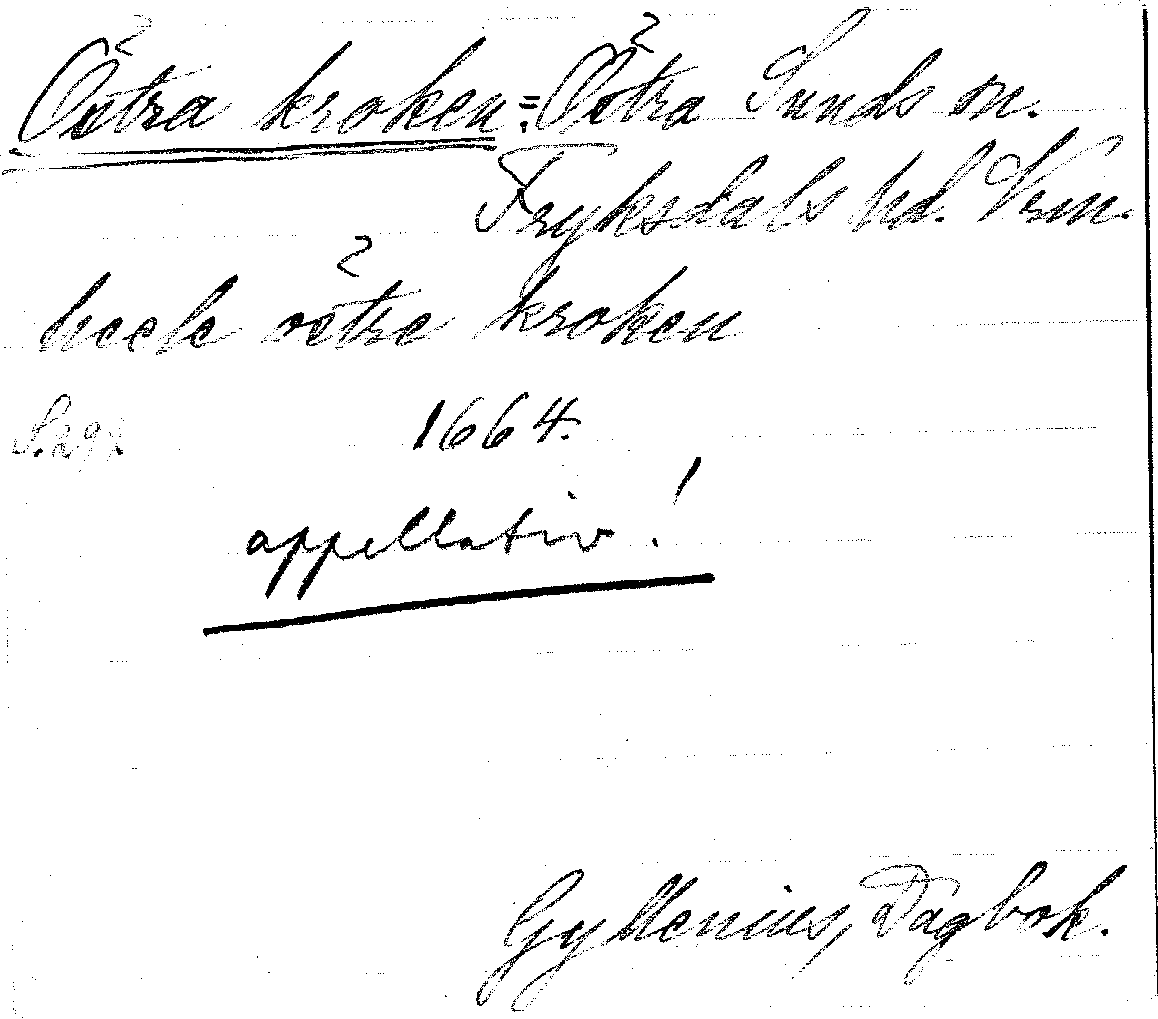 Östra kroken = Östra Sunds sn.
Fryksdals hd. Vrm.
heele östre kroken
S. 297.
1664.
appellativ!
Gyllenius, Dagbok.